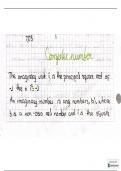 Complex number
The imaginary unit i is the principal square root of
-1 the i = √-1
An imaginary number is any number, bi, where
b is a non-zero real number and i is the square